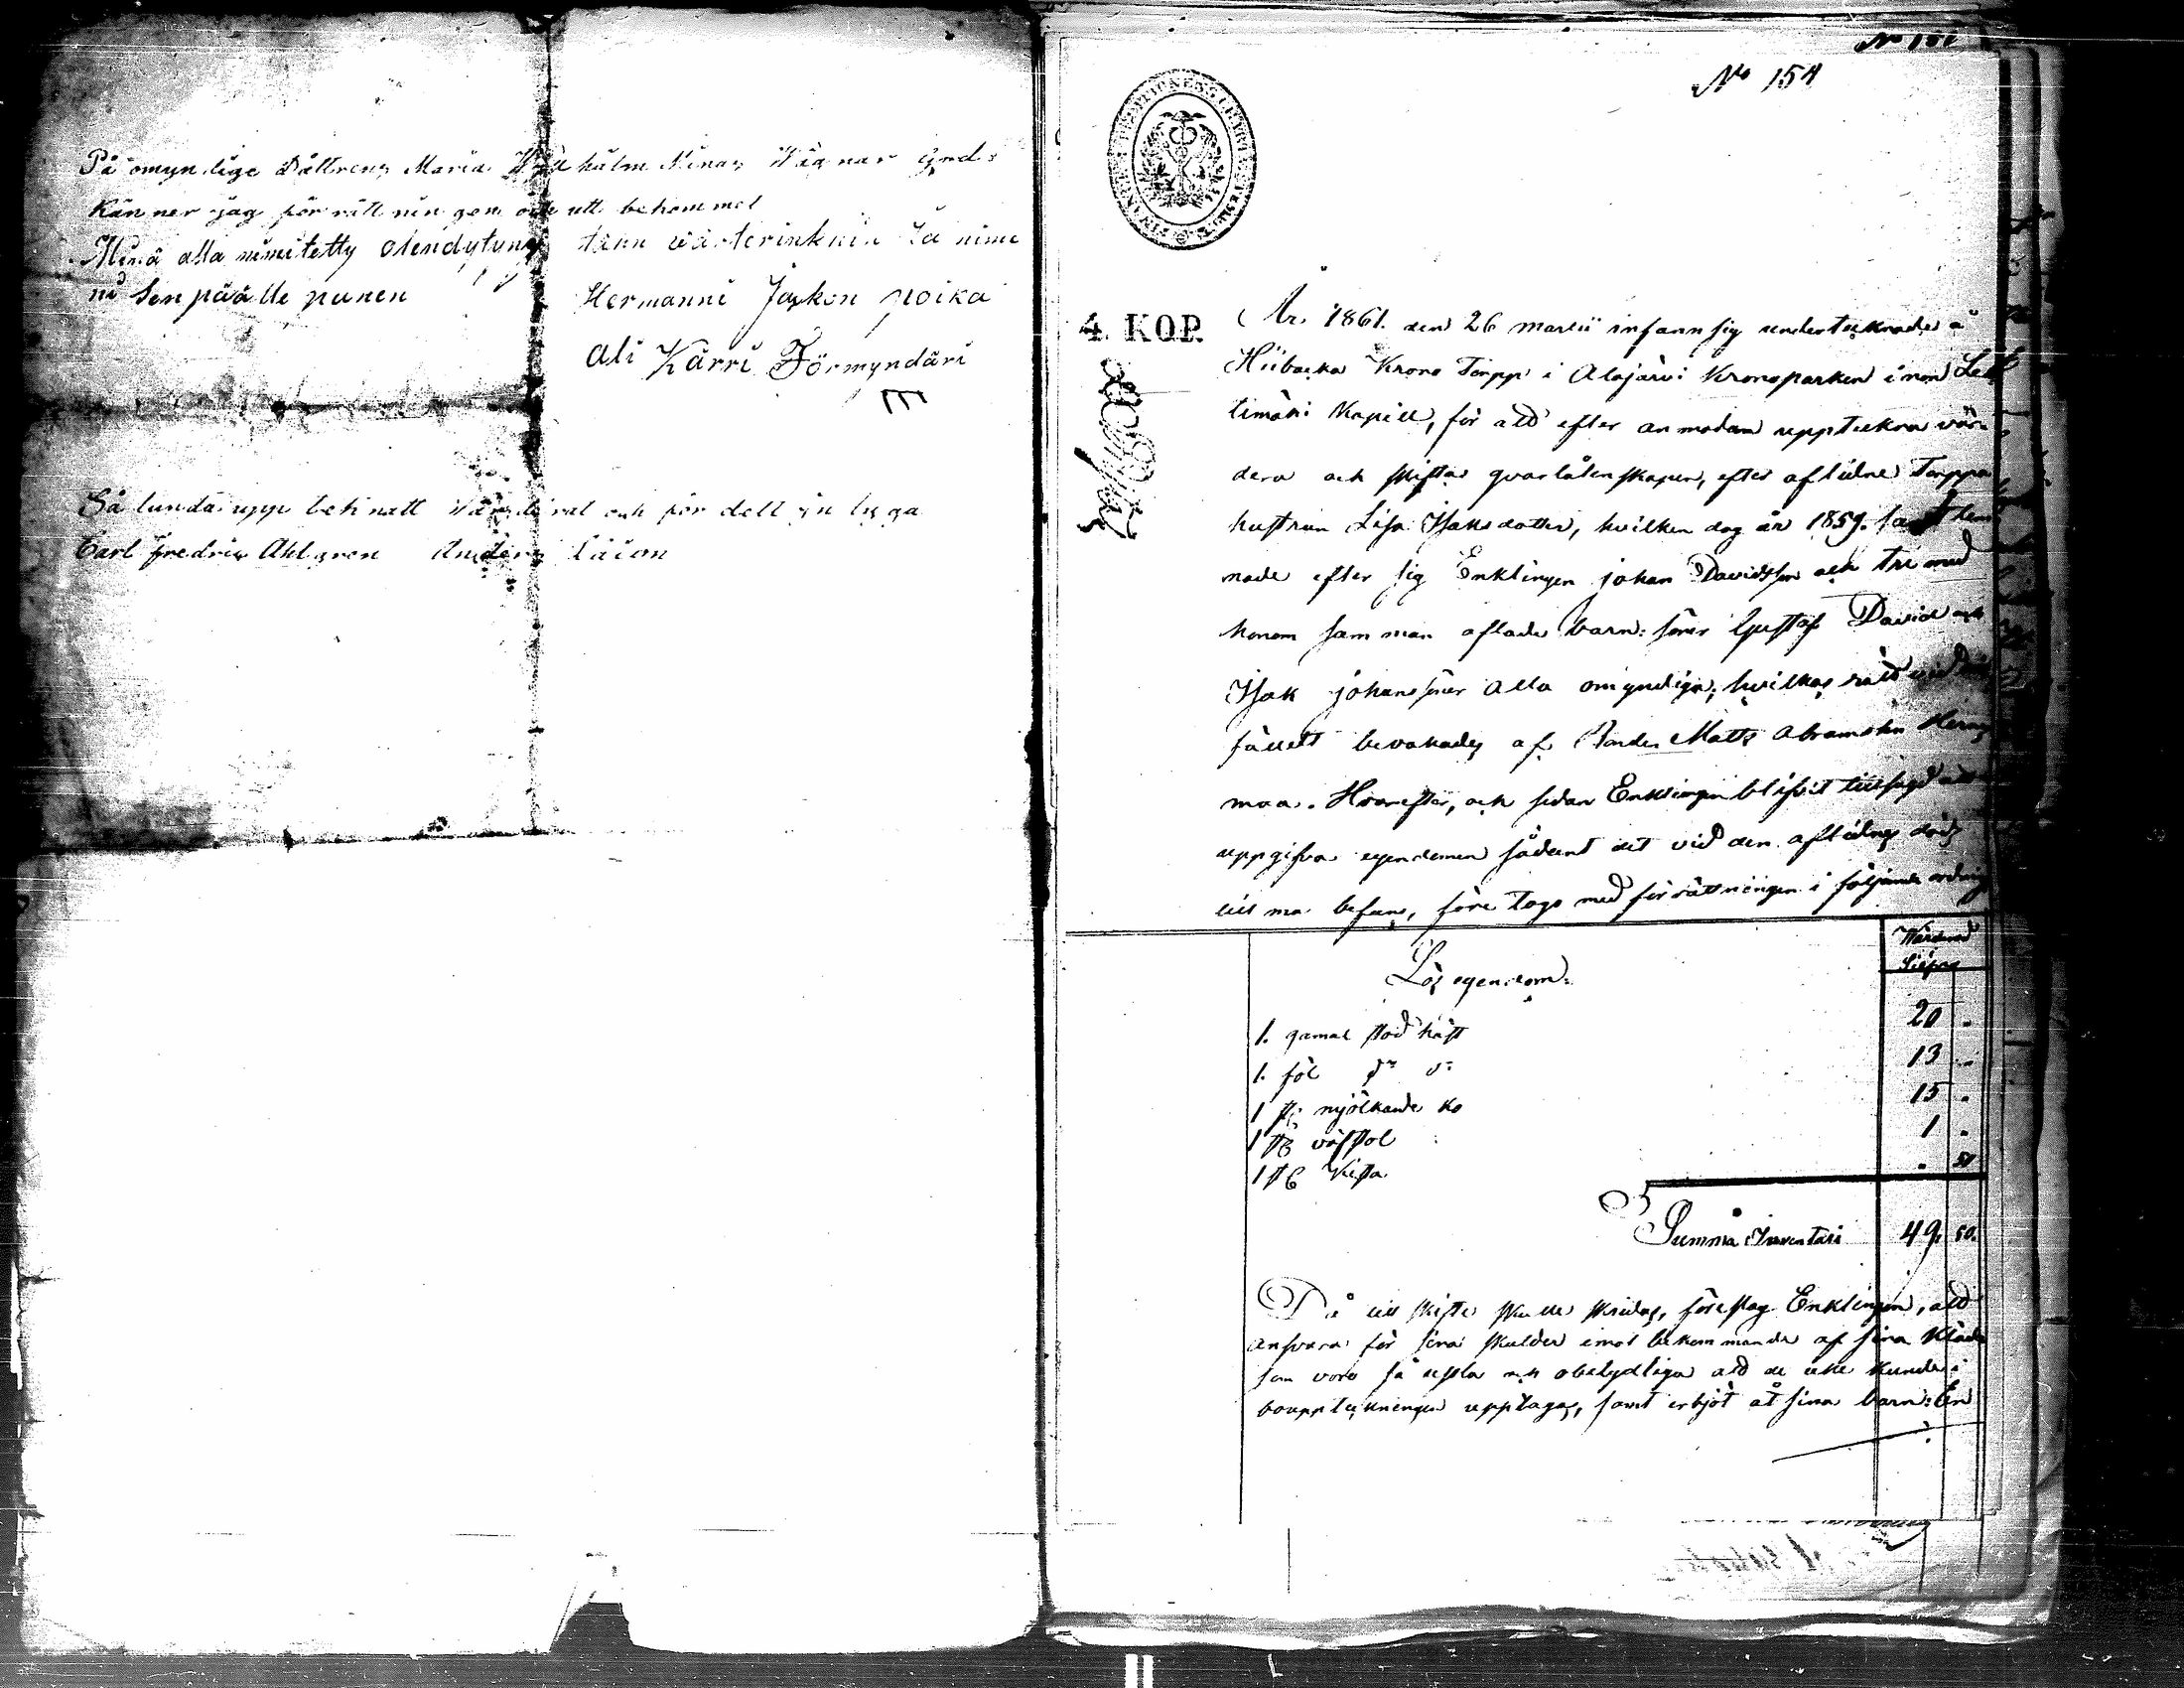 På omyndige Dåttrens Maria Wilhälm Ninas Wägnar ijnd:
känner jag förrättnin gem och utt bekommet
Minä alla nimitetty olen dytyny tänn wärterinknin Ja nime
ni Sen päälle panen Hermanni Jaskon poika
ali Kärri Förmyndäri
Så lunda upp teknatt värderat ochför delt yn lyga
Carl Fredric Ahlgren Anders
No 151
No 154
4. KOP.
År 1861. den 26 martii infann sig undertecknade å
Hiibacka Krono Torpp i Alajärvi Kronoparken inom Leh
timäki Kapell, för att efter anmodan uppteckna vär
dera och skifta qvarlåtenskapen, efter aflidne Torppa
hustrun Lisa Isaksdotter, hvilken dog år 1859. samt lem
nade efter sig Enklingen johan Davidsson och tre med
honom samman aflade barn: söner Gustaf David och
Isak johanssöner alla omyndiga, hvilkas rätt vid
fället bevakades af Bonden Matts Abramsson
maa. Hvarefter, och sedan Enklingen blifvit tillsagd att
uppgifva egendomen sådant det vid den aflidnes död
till ma befans, företogs med förrättningen i följande ordning
Wärderad
Silfver
Lös egendom:
1. gamal stod häst 20 "
1. föl do do 13 "
1 st: mjölkande ko 15 "
1 st väfstol 1 "
1 st Kista " 50
Summa Inventari 49. 50.
Då till skifte skulle skridas, föreslog Enklingen, att
ansvara för sina skulder imot bekommande af sina kläder
som voro så usla och obetydliga att de icke kunde i
bouppteckningen upptagas, samt erbjöt åt sina barn: En